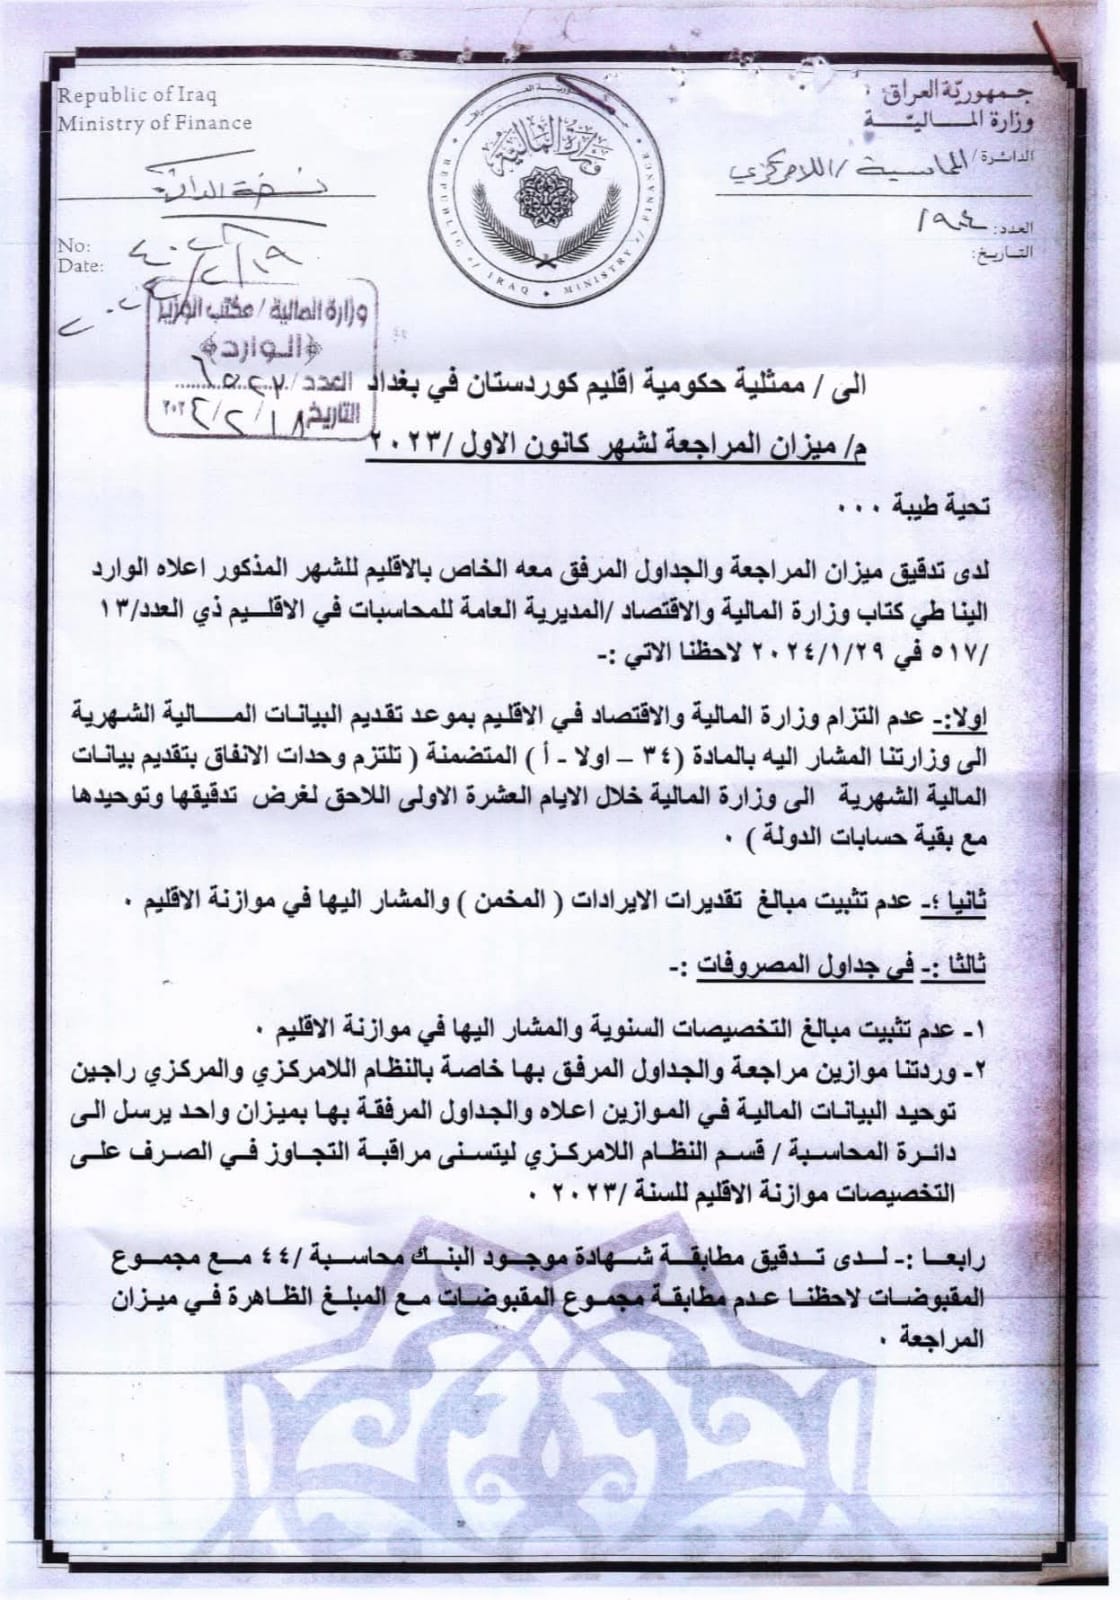 Republic of Iraq
Ministry of Finance
جمهورية العراق
وزارة المالية
الدائرة / المحاسبية / اللامركزي
نسخة الدائرة
العدد: ١٩٠٤
التاريخ:
No:
Date:
وزارة المالية
REPUBLIC of IRAQ ♦ MINISTRY of FINANCE
وزارة المالية / مكتب الوزير
الوارد
العدد /
التاريخ ١٨/٢/٢٠٢٤
الى / ممثلية حكومية اقليم كوردستان في بغداد
م/ ميزان المراجعة لشهر كانون الاول /٢٠٢٣
تحية طيبة ٠٠٠
لدى تدقيق ميزان المراجعة والجداول المرفق معه الخاص بالاقليم للشهر المذكور اعلاه الوارد
الينا طي كتاب وزارة المالية والاقتصاد /المديرية العامة للمحاسبات في الاقليم ذي العدد/١٣
/٥١٧ في ٢٠٢٤/١/٢٩ لاحظنا الاتي :-
اولا:- عدم التزام وزارة المالية والاقتصاد في الاقليم بموعد تقديم البيانات المالية الشهرية
الى وزارتنا المشار اليه بالمادة (٣٤ – اولا - أ ) المتضمنة ( تلتزم وحدات الانفاق بتقديم بيانات
المالية الشهرية الى وزارة المالية خلال الايام العشرة الاولى اللاحق لغرض تدقيقها وتوحيدها
مع بقية حسابات الدولة ) ٠
ثانيا :- عدم تثبيت مبالغ تقديرات الايرادات ( المخمن ) والمشار اليها في موازنة الاقليم ٠
ثالثا :- في جداول المصروفات :-
١- عدم تثبيت مبالغ التخصيصات السنوية والمشار اليها في موازنة الاقليم ٠
٢- وردتنا موازين مراجعة والجداول المرفق بها خاصة بالنظام اللامركزي والمركزي راجين
توحيد البيانات المالية في الموازين اعلاه والجداول المرفقة بها بميزان واحد يرسل الى
دائرة المحاسبة / قسم النظام اللامركزي ليتسنى مراقبة التجاوز في الصرف على
التخصيصات موازنة الاقليم للسنة /٢٠٢٣ ٠
رابعا :- لدى تدقيق مطابقة شهادة موجود البنك محاسبة /٤٤ مع مجموع
المقبوضات لاحظنا عدم مطابقة مجموع المقبوضات مع المبلغ الظاهرة في ميزان
المراجعة ٠